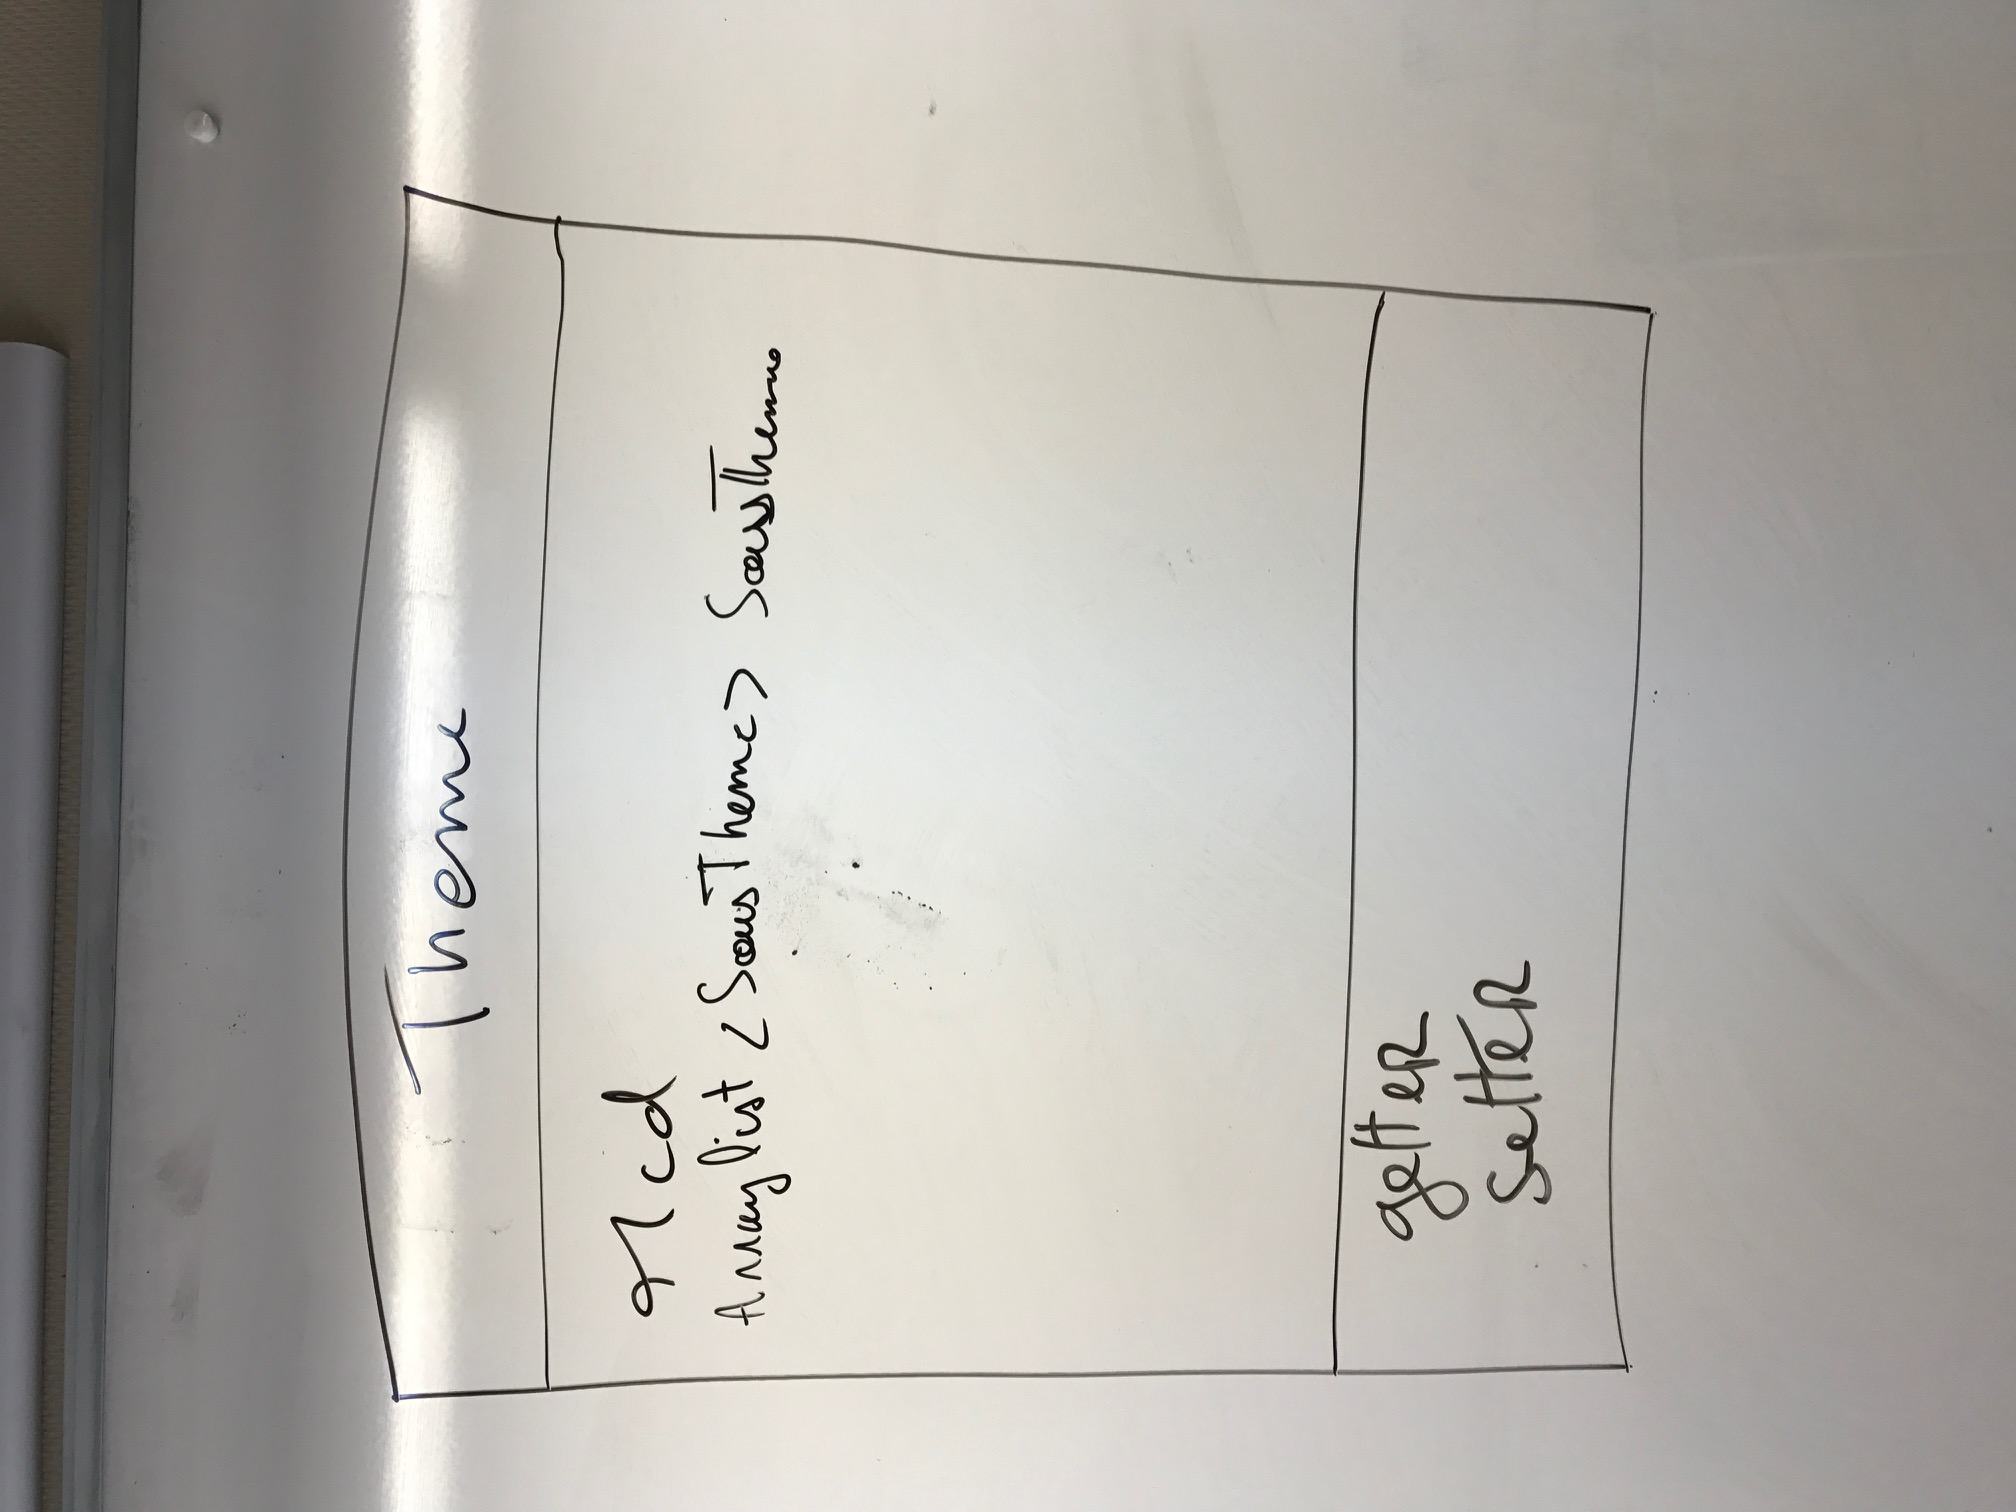 Theme
Mcd
Arraylist <SousTheme> SousTheme
getter
setter